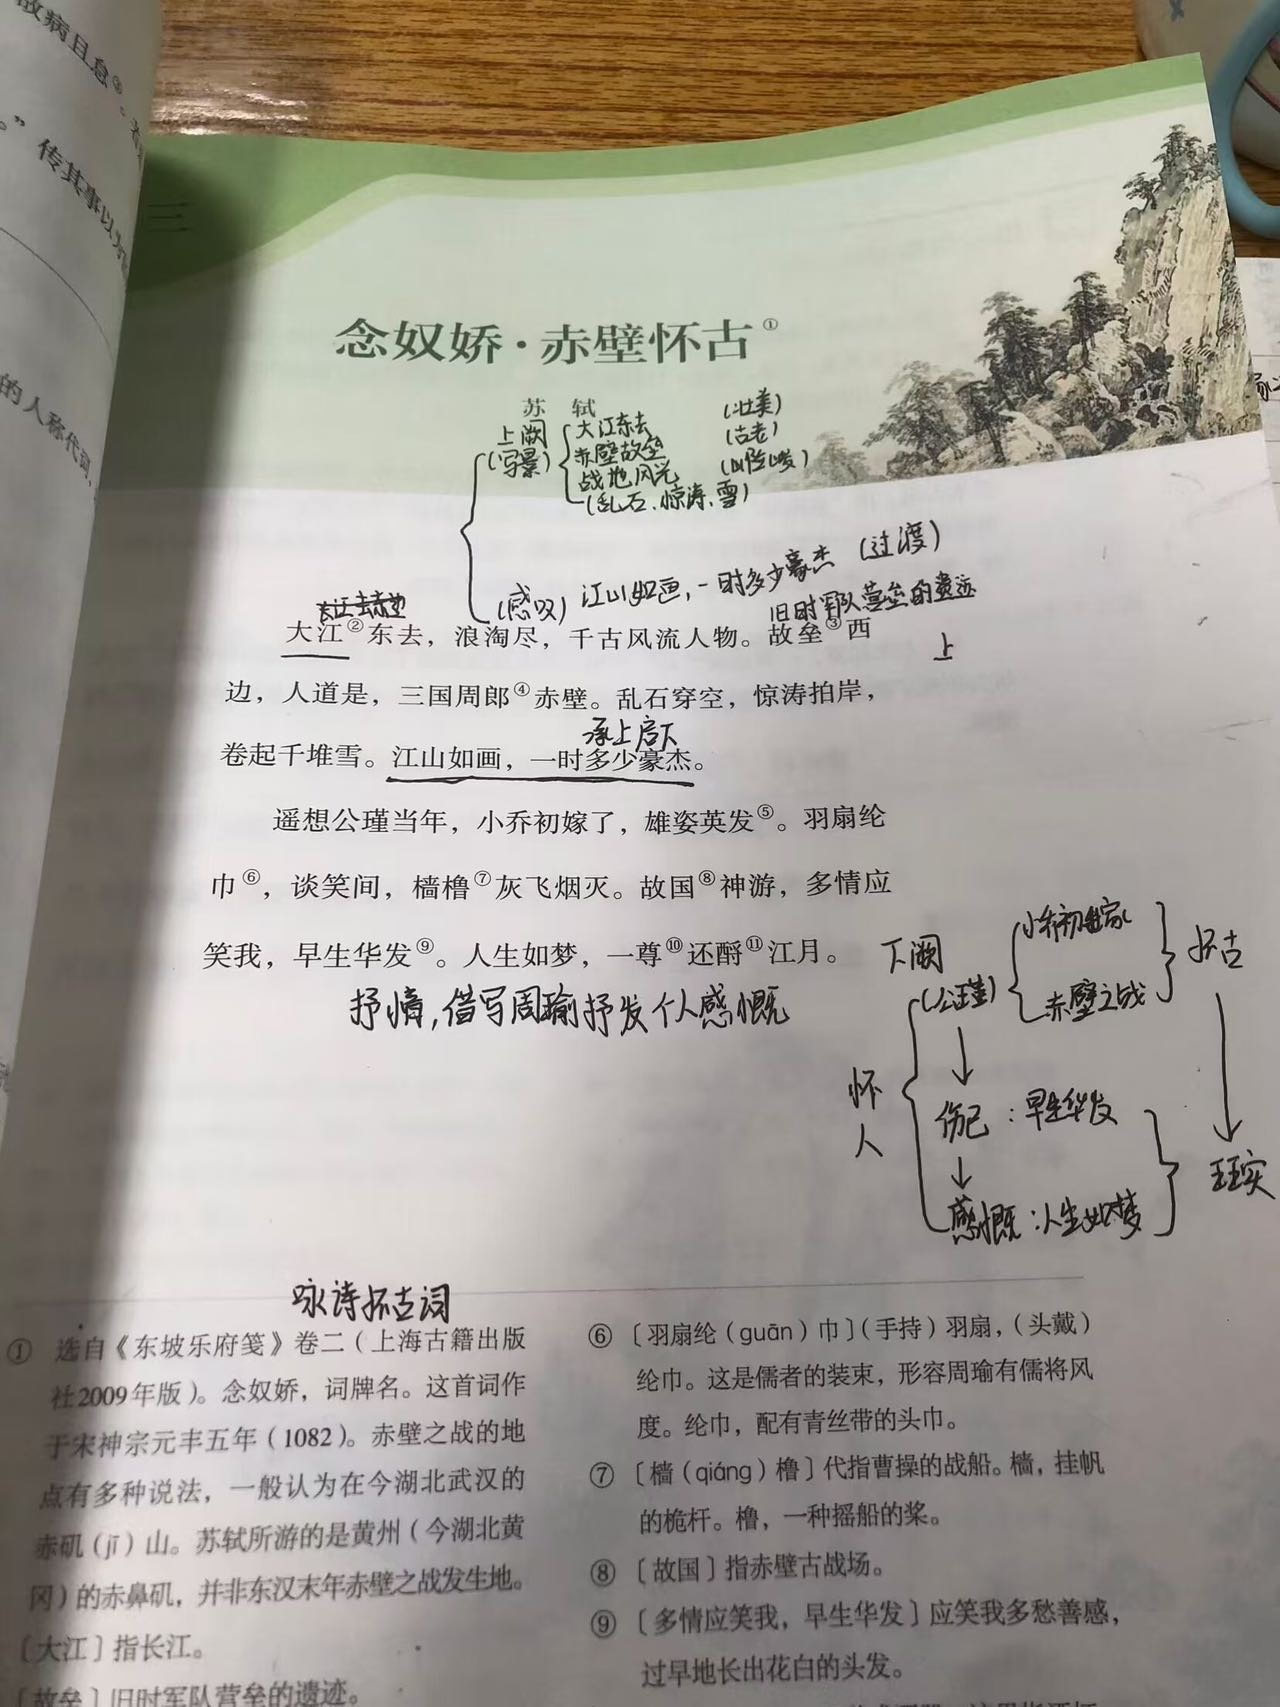 故病且怠③。
”传其事以为
的人称代词
三
念奴娇·赤壁怀古①
苏 轼
上阕
(写景)
大江东去 (壮美)
赤壁故垒 (古老)
战地风光 (凶险峻)
(乱石、惊涛、雪)
(感叹) 江山如画,一时多少豪杰 (过渡)
旧时军队营垒的遗迹
大江②东去，浪淘尽，千古风流人物。故垒③西
上
边，人道是，三国周郎④赤壁。乱石穿空，惊涛拍岸，
承上启下
卷起千堆雪。江山如画，一时多少豪杰。
遥想公瑾当年，小乔初嫁了，雄姿英发⑤。羽扇纶
巾⑥，谈笑间，樯橹⑦灰飞烟灭。故国⑧神游，多情应
笑我，早生华发⑨。人生如梦，一尊⑩还酹⑪江月。
抒情,借写周瑜抒发个人感慨
下阕
(公瑾)
小乔初嫁
赤壁之战
怀古
怀人
伤己：早生华发
感慨：人生如梦
现实
咏诗怀古词
① 选自《东坡乐府笺》卷二（上海古籍出版
社2009年版）。念奴娇，词牌名。这首词作
于宋神宗元丰五年（1082）。赤壁之战的地
点有多种说法，一般认为在今湖北武汉的
赤矶（jī）山。苏轼所游的是黄州（今湖北黄
冈）的赤鼻矶，并非东汉末年赤壁之战发生地。
〔大江〕指长江。
〔故垒〕旧时军队营垒的遗迹。
⑥〔羽扇纶（guān）巾〕（手持）羽扇，（头戴）
纶巾。这是儒者的装束，形容周瑜有儒将风
度。纶巾，配有青丝带的头巾。
⑦〔樯（qiáng）橹〕代指曹操的战船。樯，挂帆
的桅杆。橹，一种摇船的桨。
⑧〔故国〕指赤壁古战场。
⑨〔多情应笑我，早生华发〕应笑我多愁善感，
过早地长出花白的头发。